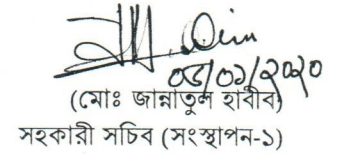 ০৫/০১/২০২০
(মোঃ জান্নাতুল হাবীব)
সহকারী সচিব (সংস্থাপন-১)